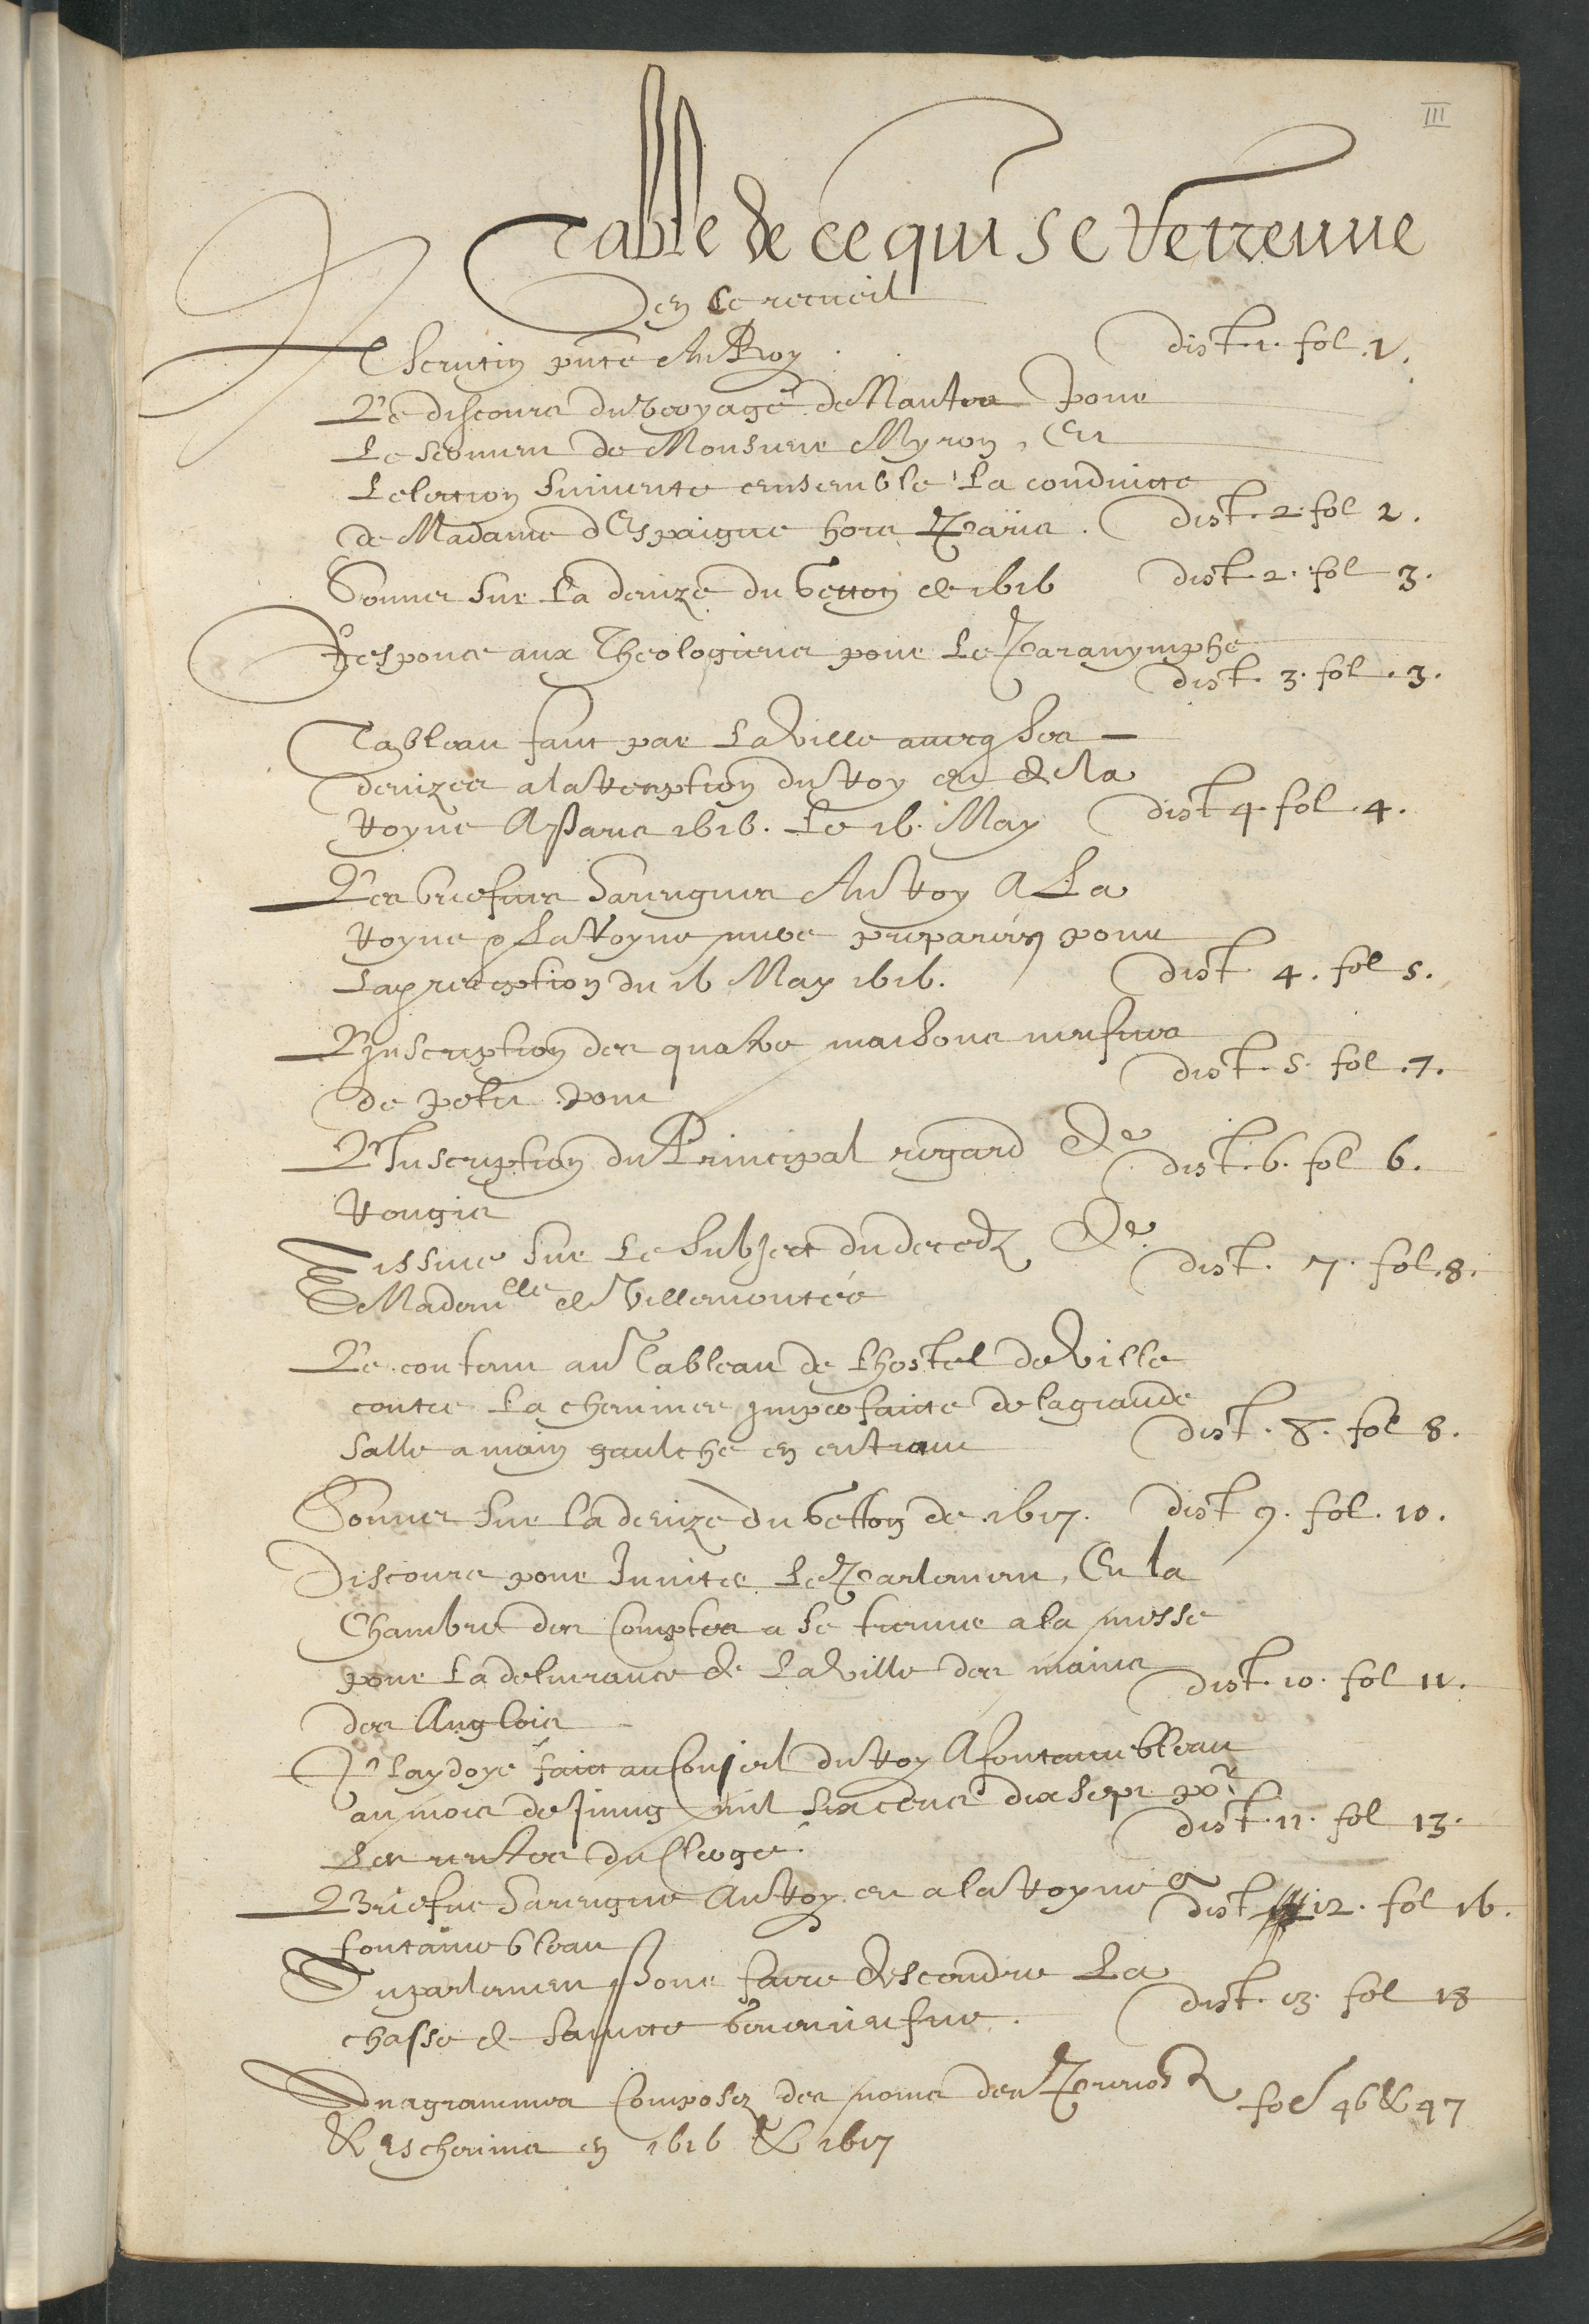 III
Table de ce qui se retreuue
en ce recueil
Scrutin pnté Au Roy dist. 1. fol. 1.
Le discours du voyage de Nantes pour
Le scrutin de Monsieur Myron, Et
Lelection suiuente ensemble La conduitte
de Madame d'Espaigne hors Paris. dist. 2. fol 2.
Sonnet sur La deuize du getton de 1616 dist. 2. fol 3.
Responce aux Theologiens pour Le Paranymphe
dist. 3. fol. 3.
Tableau faict par La Ville auecq ses
deuizes a la reception du Roy et de la
Royne A Paris 1616. Le 16. May dist 4. fol. 4.
Les briefues harengues Au Roy A La
Royne & La Royne mere preparées pour
La reception du 16 May 1616. dist 4. fol 5.
L'Inscription des quatre maisons neufues
de petit pont dist. 5. fol. 7.
L'Inscription du Principal regard de dist. 6. fol 6.
Rongis
Tissue sur Le Subject du decedz de dist. 7. fol. 8.
Madem<sup>lle</sup> de Villemontée
Le contenu au Tableau de Lhostel de Ville
contre La cheminee imperfaicte de la grande
salle a main gaulche en entrant dist. 8. fol 8.
Sonnet sur La deuize du getton de 1617. dist 9. fol. 10.
Discours pour Inuiter Le Parlement, Et la
Chambre des Comptes a se treuuer a la messe
pour La deliurance de La Ville des mains dist. 10. fol 11.
des Anglois
Playdoye faict au Conseil du Roy A fontainebleau
au mois de Juing mil six cens dix sept po<sup>r</sup>
Les rentes du Clerge. dist. 11. fol 13.
Briefue harengue Au Roy et a la Royne a dist 12. fol 16.
fontainebleau
Au parlement Pour faire descendre La
chasse de saincte Geneuiefue. dist. 13. fol 18
Anagrammes Composez des noms des Preuost
& Escheuins en 1616 & 1617 fol 46 & 47